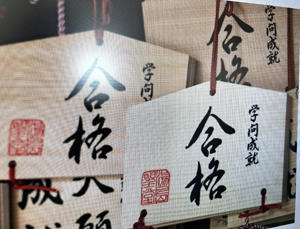 学問成就
合格
学問成就
合格
学問成就
合格
大願
成就